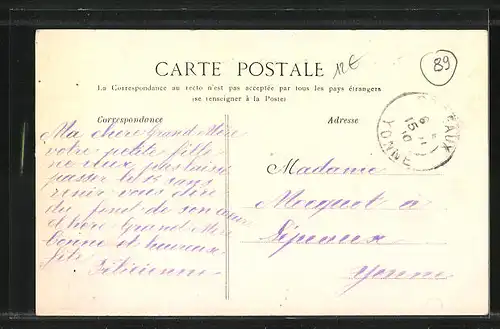 12€
89
CARTE POSTALE
La Correspondance au recto n'est pas acceptée par tous les pays étrangers
(se renseigner à la Poste)
Correspondance
Adresse
Ma chère Grand Mère
votre petite fille
ne veux pas laisser
passer le 15 sans
venir vous dire
du fond de son cœur
chère Grand Mère
bonne et heureuse
fête
Félicienne
Madame
Mocquet à
Sépeaux
Yonne
YONNE